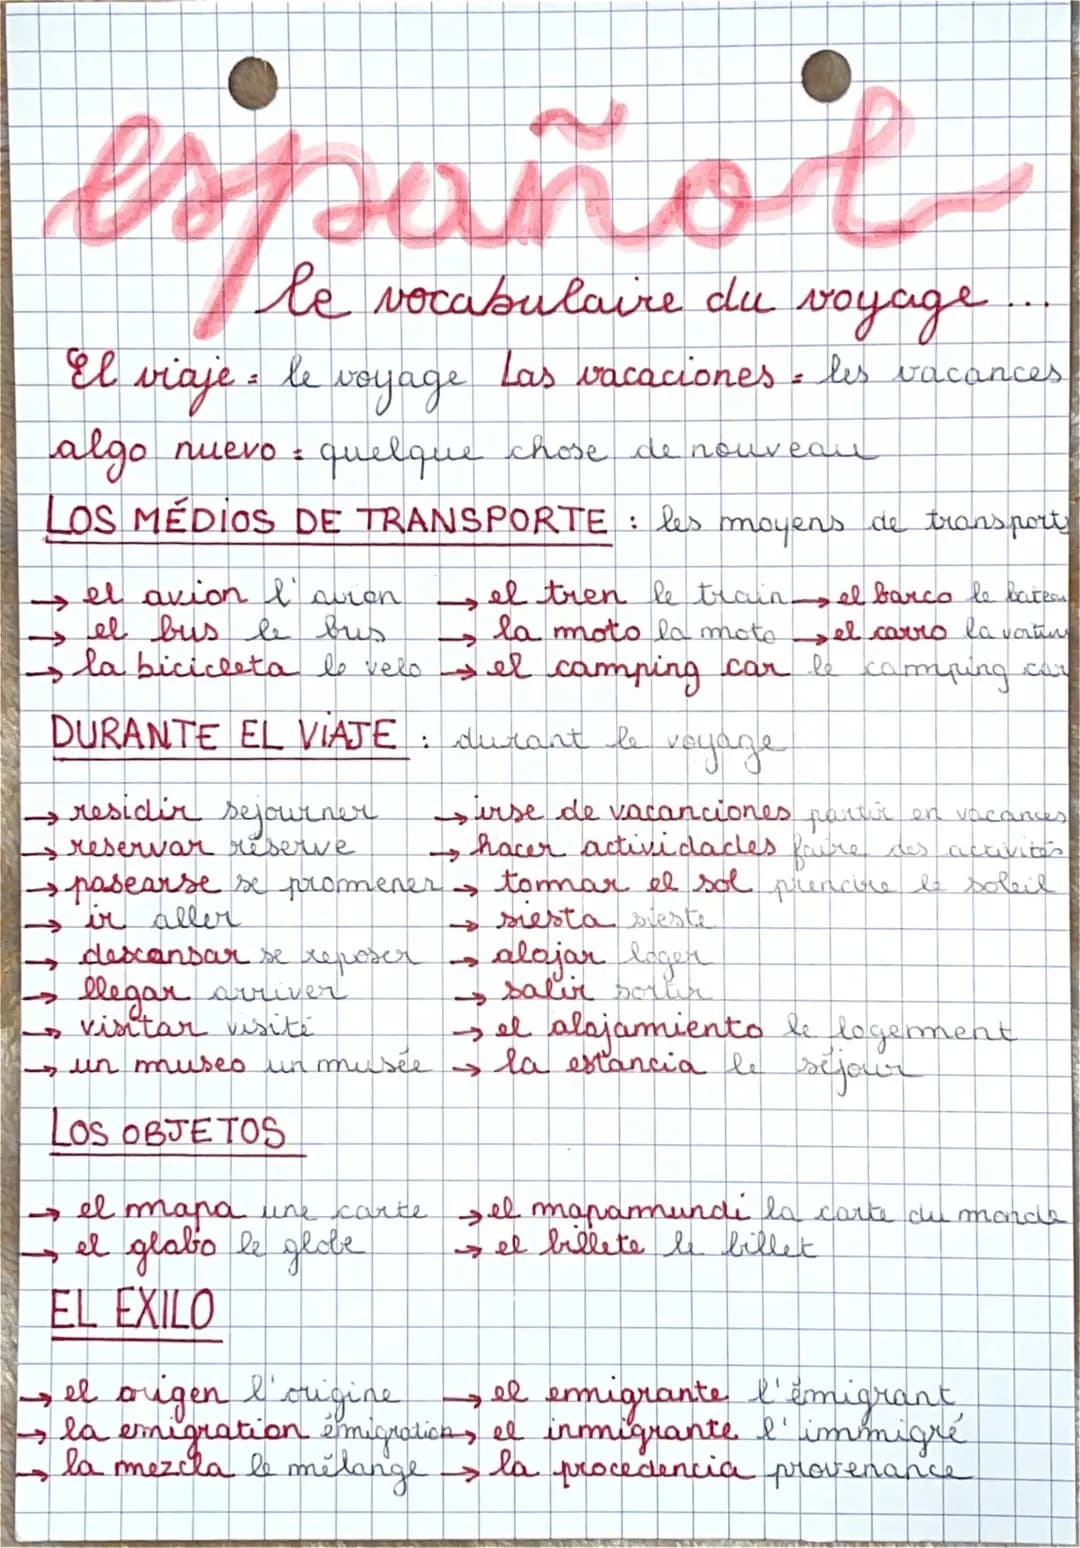 español
le vocabulaire du voyage...
El viaje = le voyage Las vacaciones = les vacances
algo nuevo = quelque chose de nouveau
LOS MÉDIOS DE TRANSPORTE : les moyens de transports
→ el avion l'avion → el tren le train → el barco le bateau
→ el bus le bus → la moto la moto → el carro la voiture
→ la bicicleta le velo → el camping car le camping car
DURANTE EL VIAJE : durant le voyage
→ residir sejourner → irse de vacanciones partir en vacances
→ reservar réserve → hacer actividades faire des activités
→ pasearse se promener → tomar el sol prendre le soleil
→ ir aller → siesta sieste
→ descansar se reposer → alojar loger
→ llegar arriver → salir sortir
→ visitar visité → el alojamiento le logement
→ un museo un musée → la estancia le séjour
LOS OBJETOS
→ el mapa une carte → el mapamundi la carte du monde
→ el globo le globe → el billete le billet
EL EXILO
→ el origen l'origine → el emigrante l'émigrant
→ la emigration émigration → el inmigrante l'immigré
→ la mezcla le mélange → la procedencia provenance